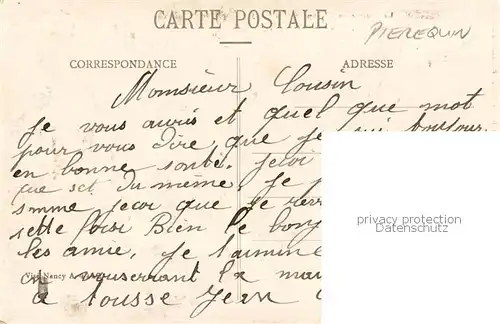 CARTE POSTALE
PIEREQUIN
CORRESPONDANCE
ADRESSE
Monsieur Cousin
Je vous auris et quel que mot
pour vous dire que je sui toujour
en bonne sonté. jecoi
que set du même. Je
somme jecoi que je rerr
sette foisi Bien le bonj
les amie. Je taimine
en vouserrant la mai
a tousse Jean
Nancy
privacy protection
Datenschutz